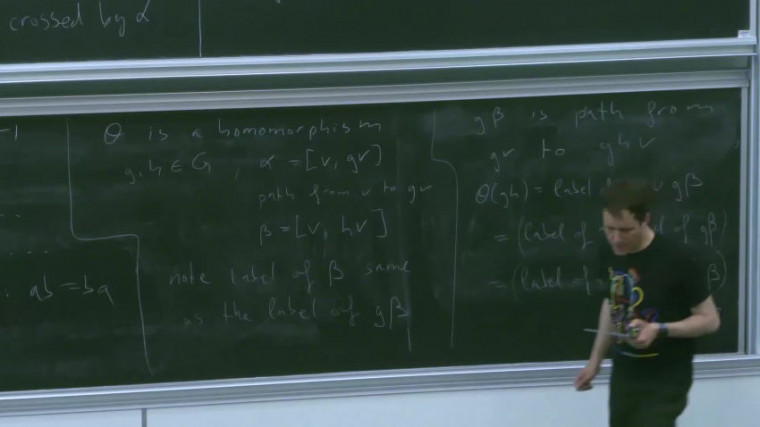 crossed by α
-1
...
...
ab = ba
θ is a homomorphism
g, h ∈ G, α = [v, gv]
path from v to gv
β = [v, hv]
note label of β same
as the label of gβ
gβ is path from
gv to ghv
θ(gh) = label of gβ
= (label of of gβ)
= (label of β)